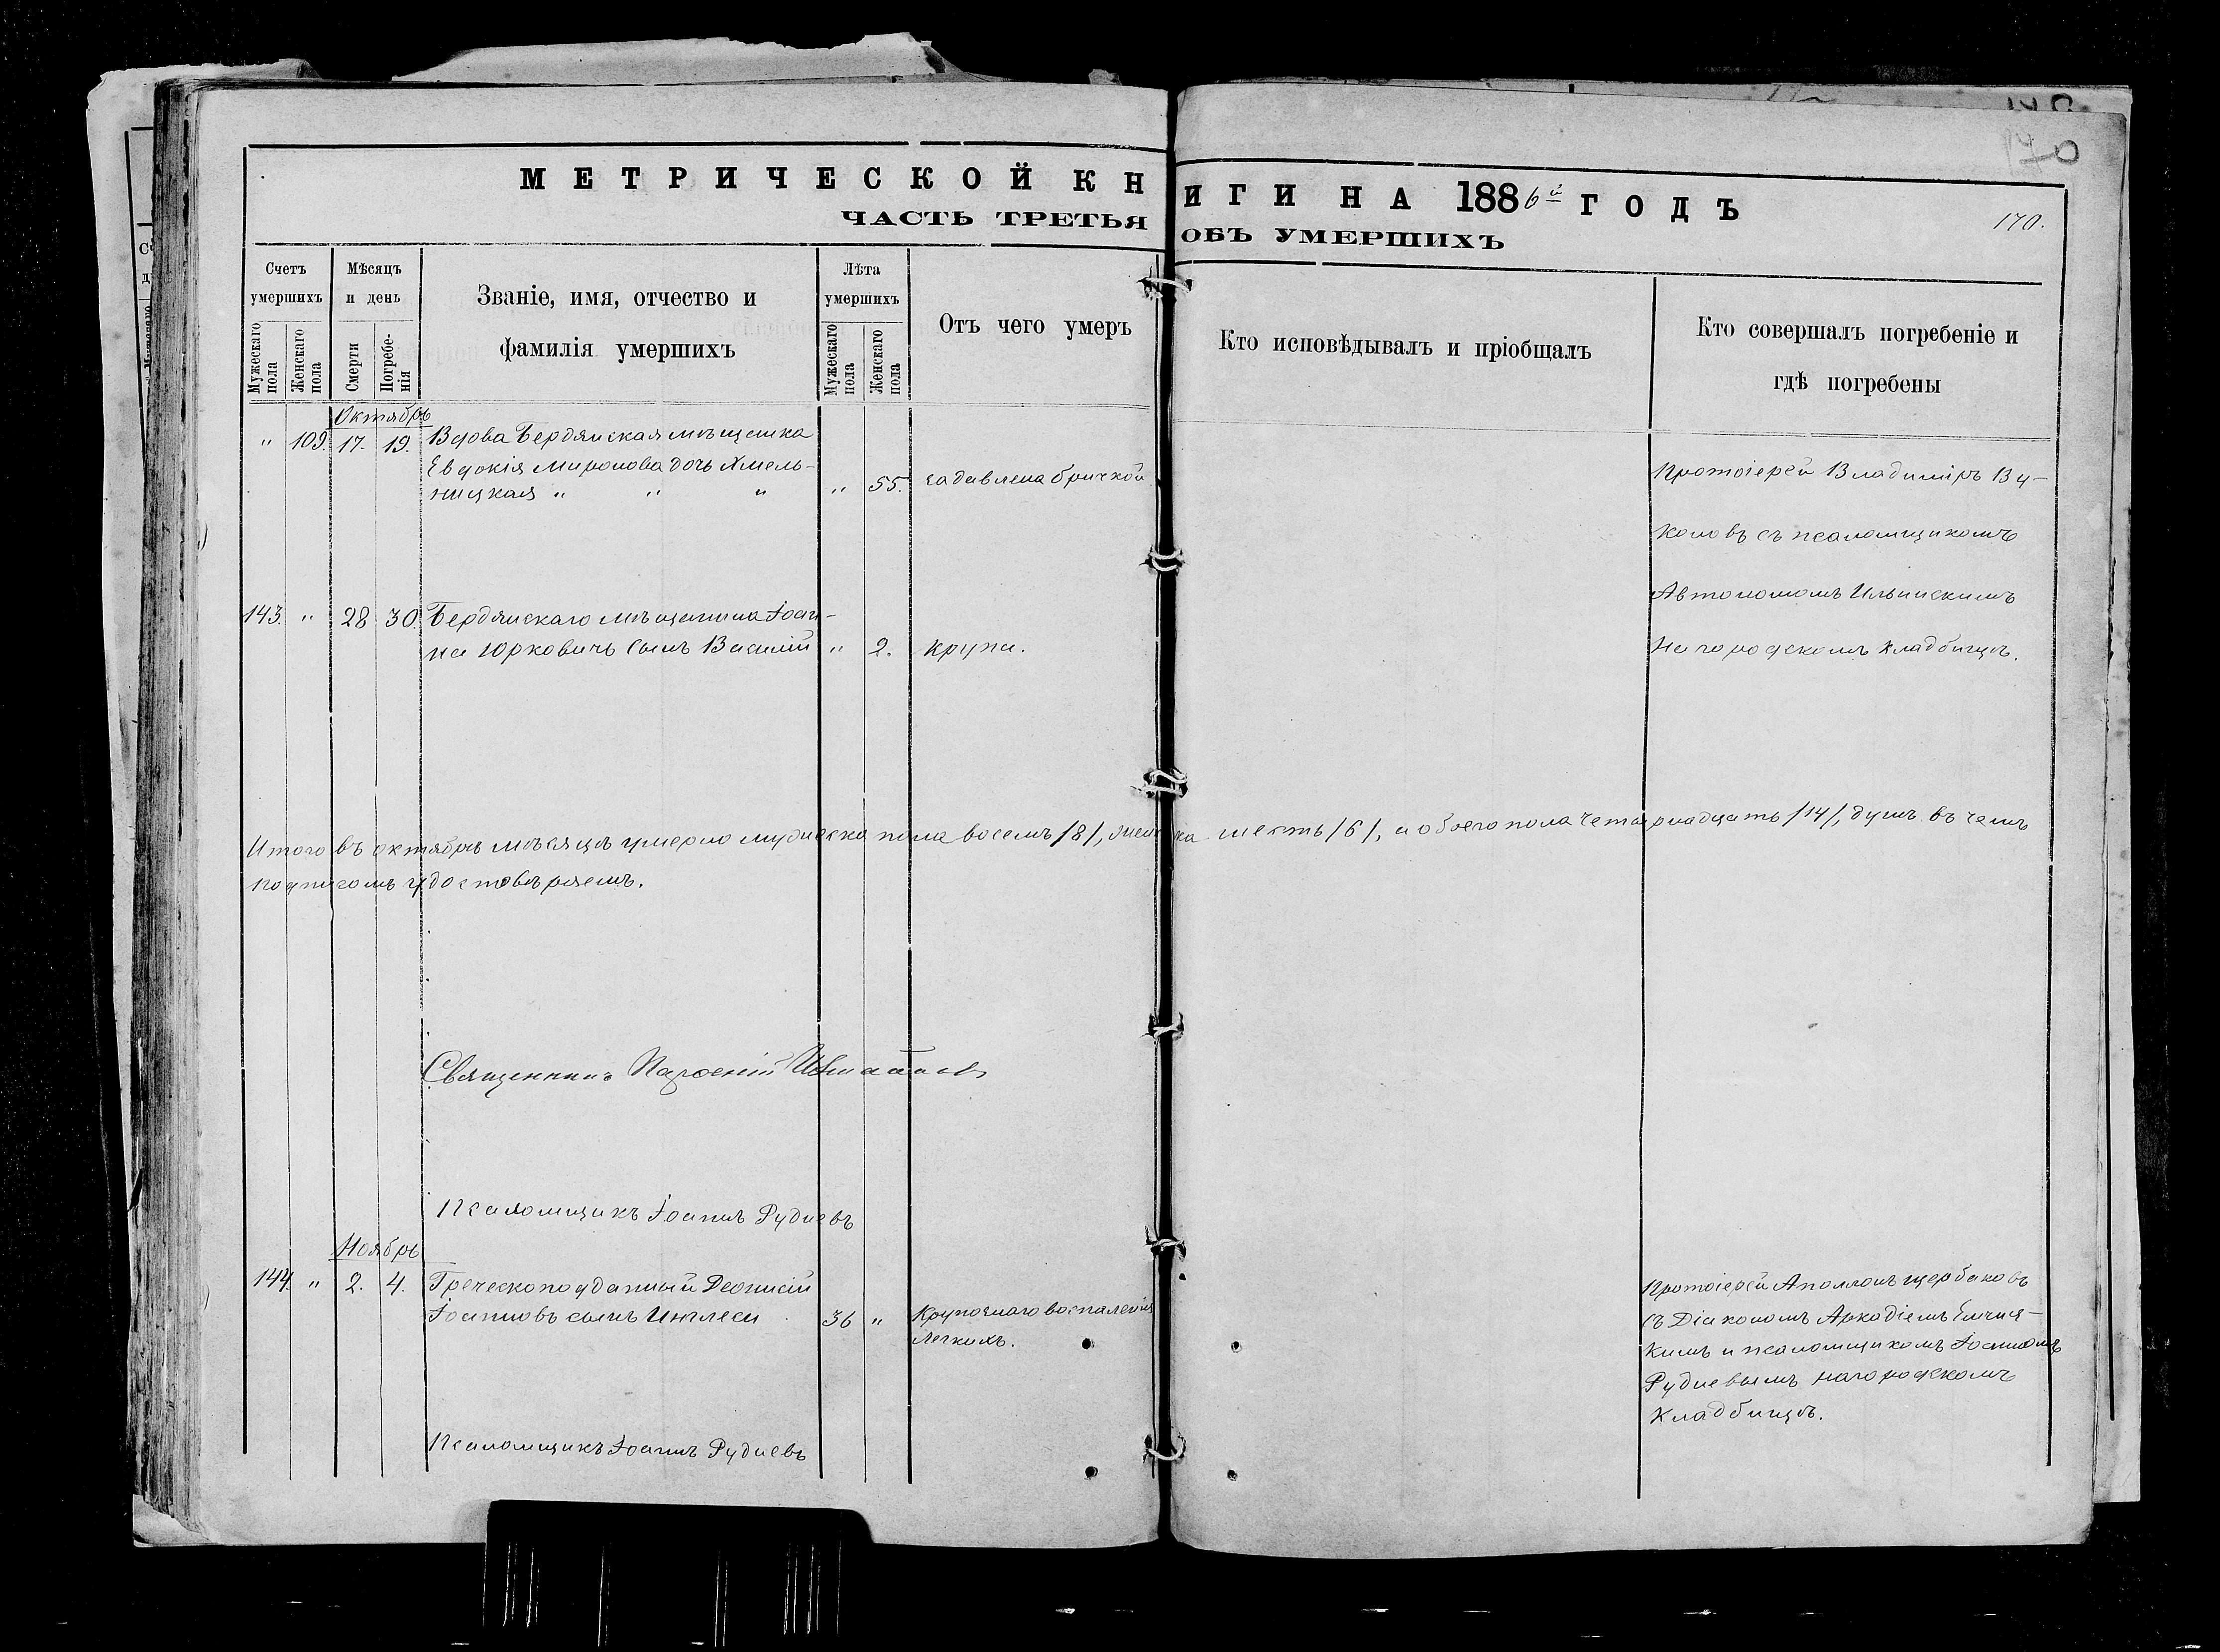 МЕТРИЧЕСКОЙ КНИГИ НА 1886й ГОДЪ
ЧАСТЬ ТРЕТЬЯ ОБЪ УМЕРШИХЪ
170.
Счетъ умершихъ
Мѣсяцъ и день
Званіе, имя, отчество и фамилія умершихъ
Лѣта умершихъ
Отъ чего умеръ
Кто исповѣдывалъ и пріобщалъ
Кто совершалъ погребеніе и гдѣ погребены
Мужескаго пола
Женскаго пола
Смерти
Погребенія
Мужескаго пола
Женскаго пола
Октябрь
" 109. 17. 19. Вдова Бердянская мѣщанка
Евдокія Миронова дочь Хмель-
ницкая " " " " 55. задавлена бричкой
Протоіерей Владиміръ Ву-
коловъ съ псаломщикомъ
Автономомъ Ильинскимъ
На городскомъ кладбищѣ.
143. " 28 30. Бердянскаго мѣщанина Іоан-
на Юрковичь сынъ Василій " 2. крупа.
Итого въ октябрѣ мѣсяцѣ умерло мужеска пола восемь /8/, женска шесть /6/, а обоего пола четырнадцать /14/, душъ. въ чемъ
подписомъ удостовѣряемъ.
Священникъ
Псаломщикъ Іоаннъ Рудневъ
Ноябрь
144. " 2. 4. Греческоподданный Деонисій
Іоанновъ сынъ Инглеси 36 " Крупознаго воспаленія
Легкихъ.
Протоіерей Аполлонъ Щербаковъ
съ Діакономъ Аркадіемъ
кимъ и псаломщикомъ Іоанномъ
Рудневымъ на городскомъ
Кладбищѣ.
Псаломщикъ Іоаннъ Рудневъ